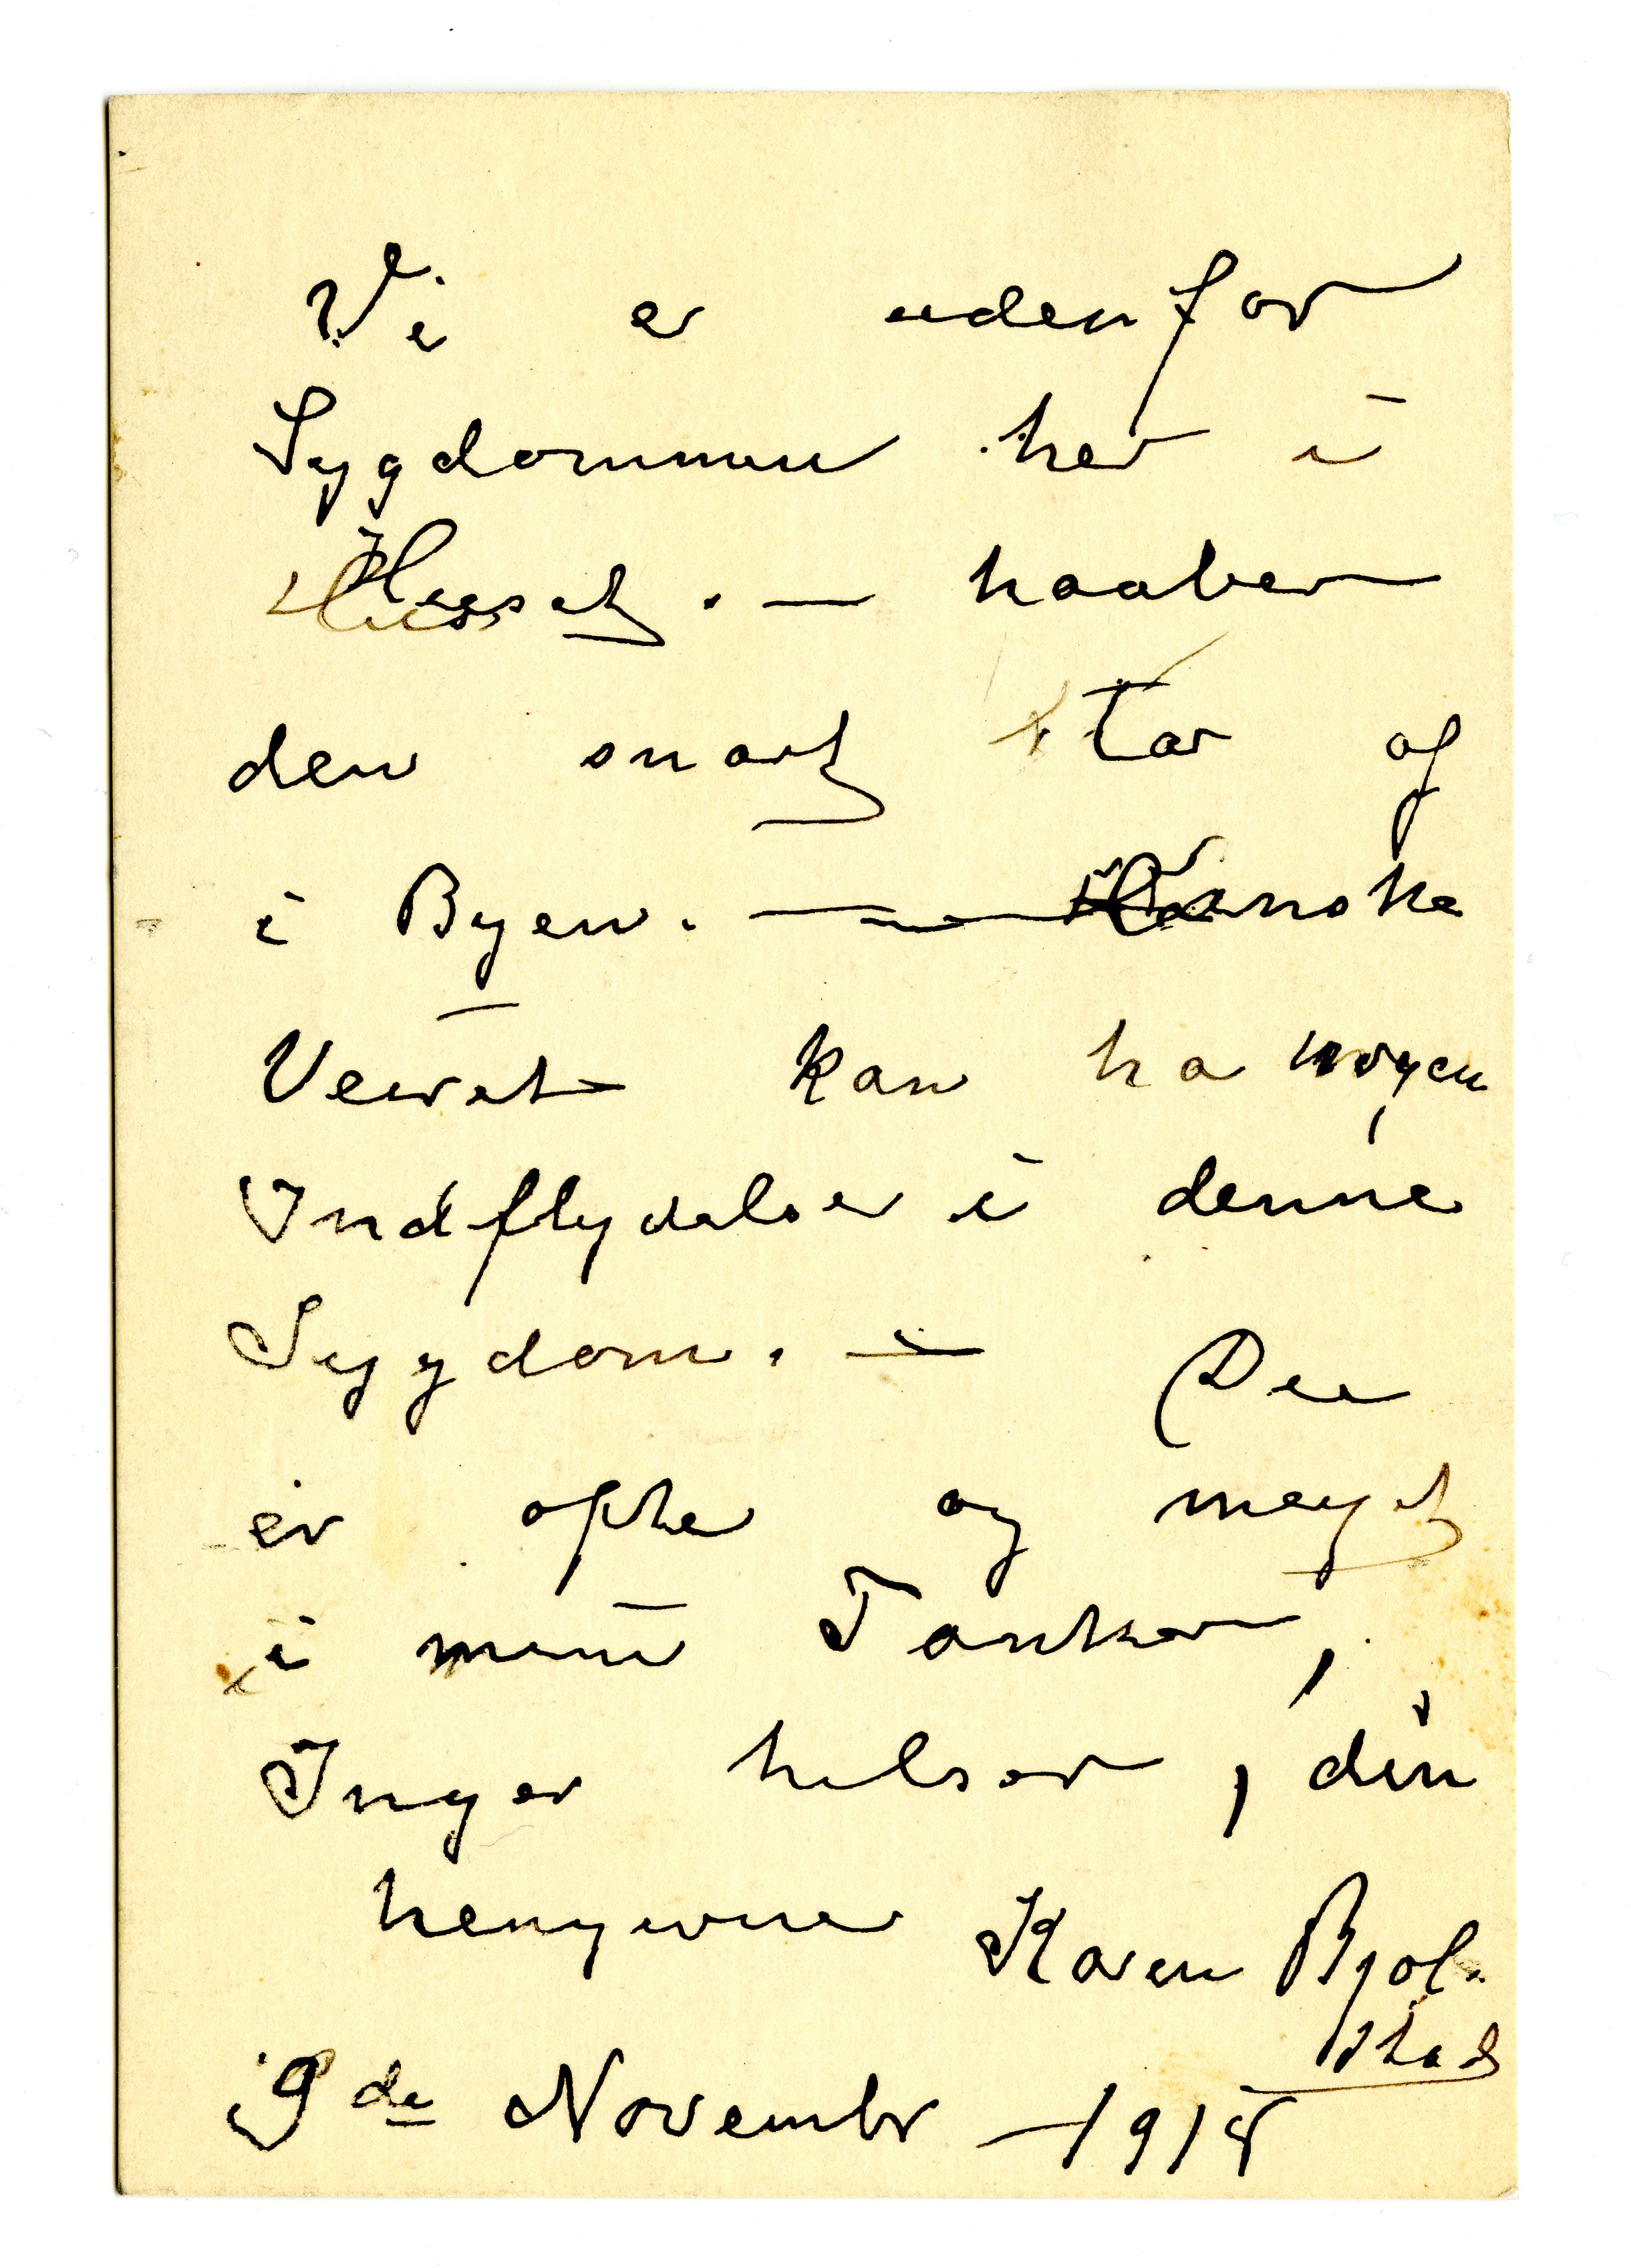 Vi er udenfor
Sygdommen her i
Huset. — haaber
den snart tar af
i Byen. — Kanske
Veiret kan ha nogen
Indflydelse i denne
Sygdom. — Du
er ofte og meget
i mine Tanker,
Inger hilser, din
hengivne Karen Bjøl-
stad
9de Novembr 1918